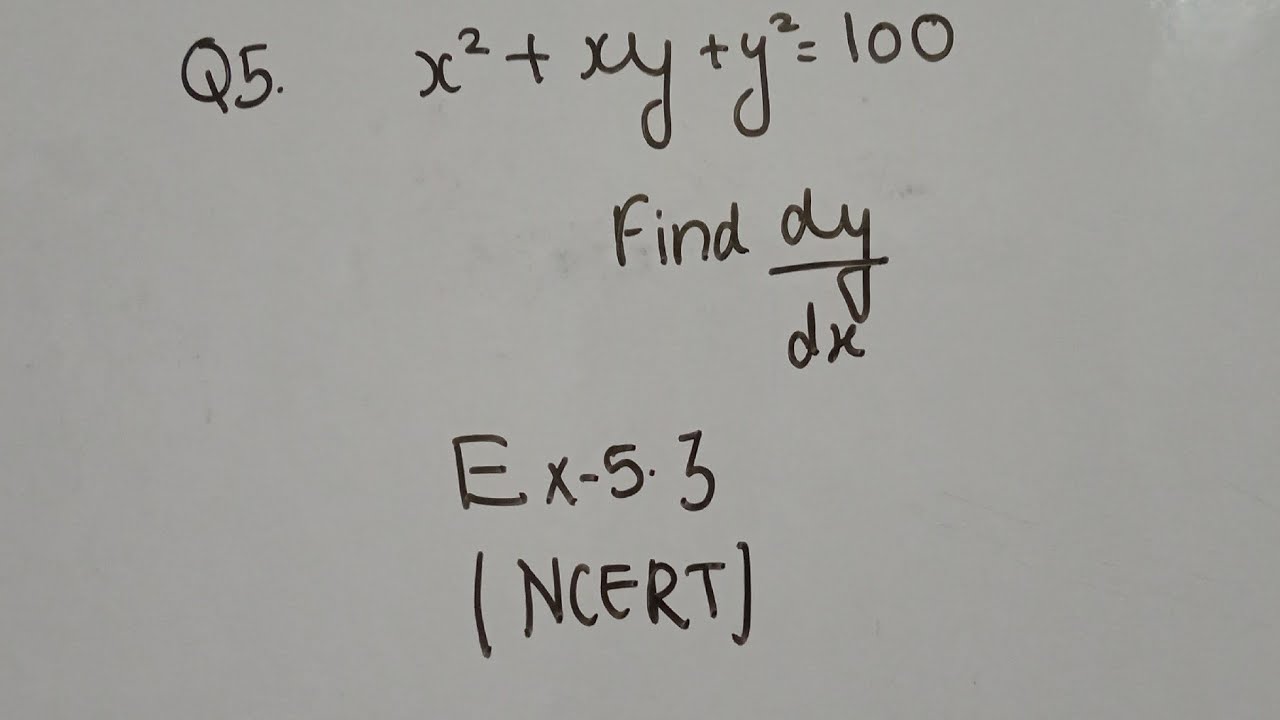 Q5. x² + xy + y² = 100
Find dy/dx
Ex-5.3
(NCERT)